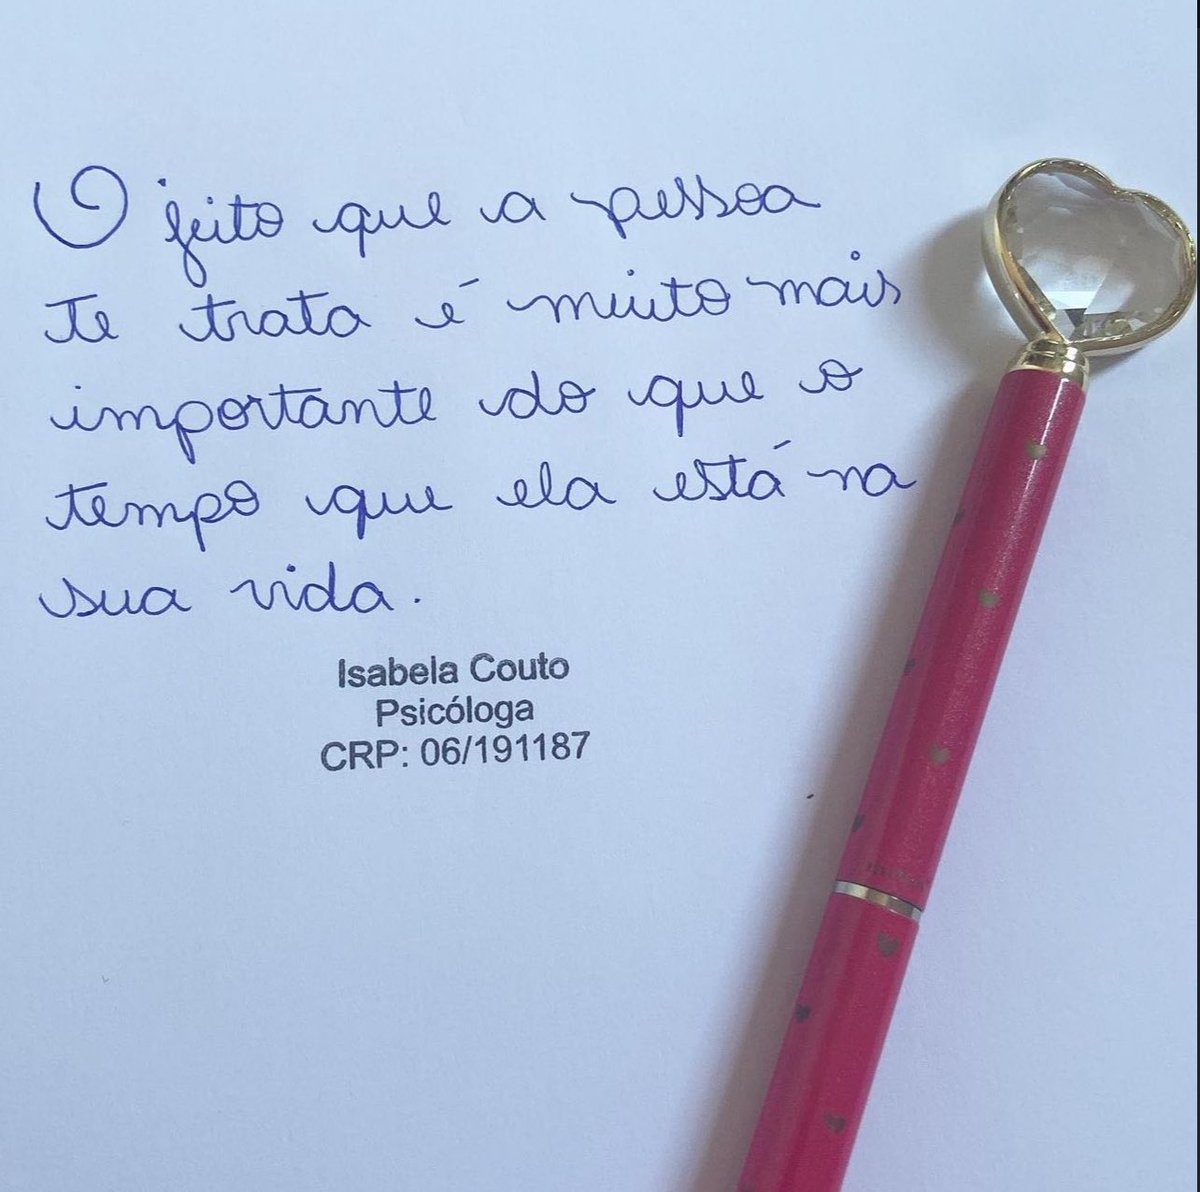 O jeito que a pessoa
te trata é muito mais
importante do que o
tempo que ela está na
sua vida.
Isabela Couto
Psicóloga
CRP: 06/191187